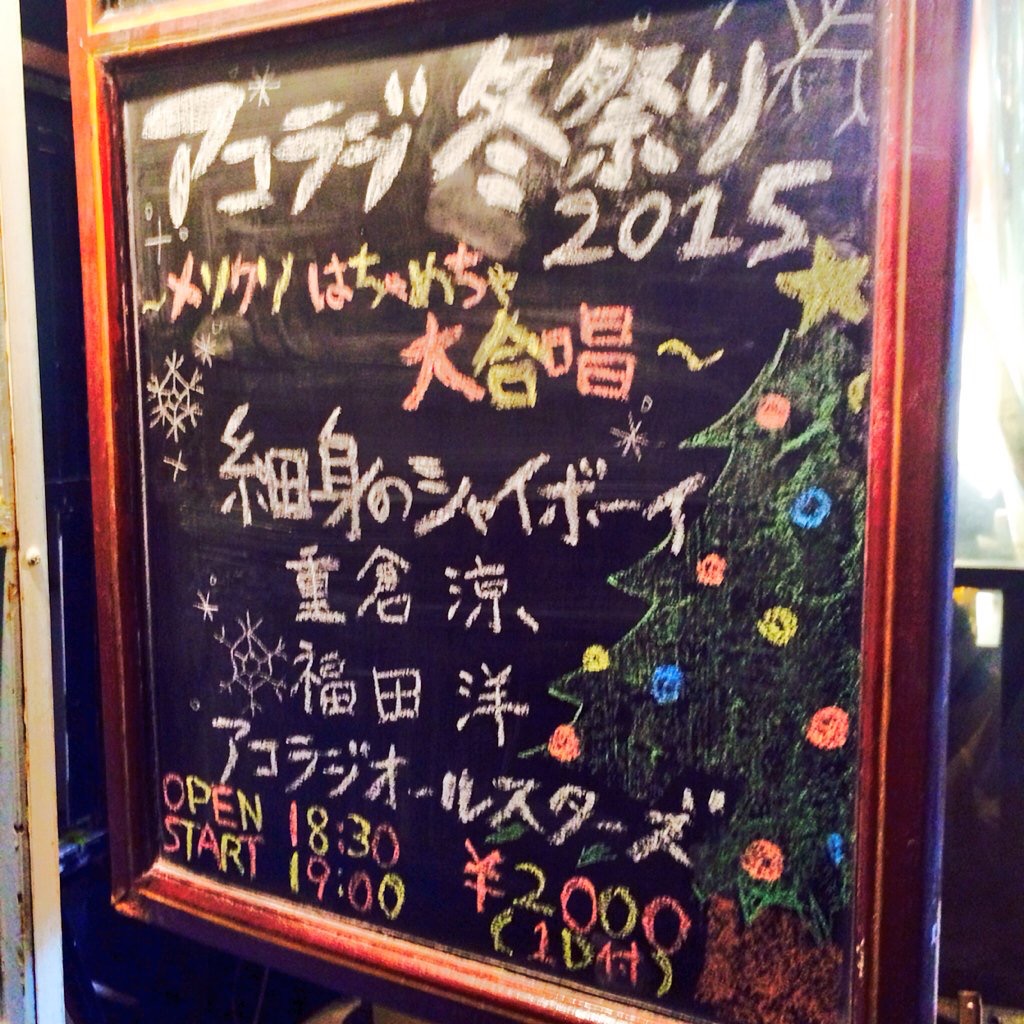 アコラジ 冬祭り
2015
～メリクリ はちゃめちゃ
大合唱～
細身のシャイボーイ
重倉 涼、
福田 洋
アコラジオールスターズ
OPEN 18:30
START 19:00
¥2000
(1D付)